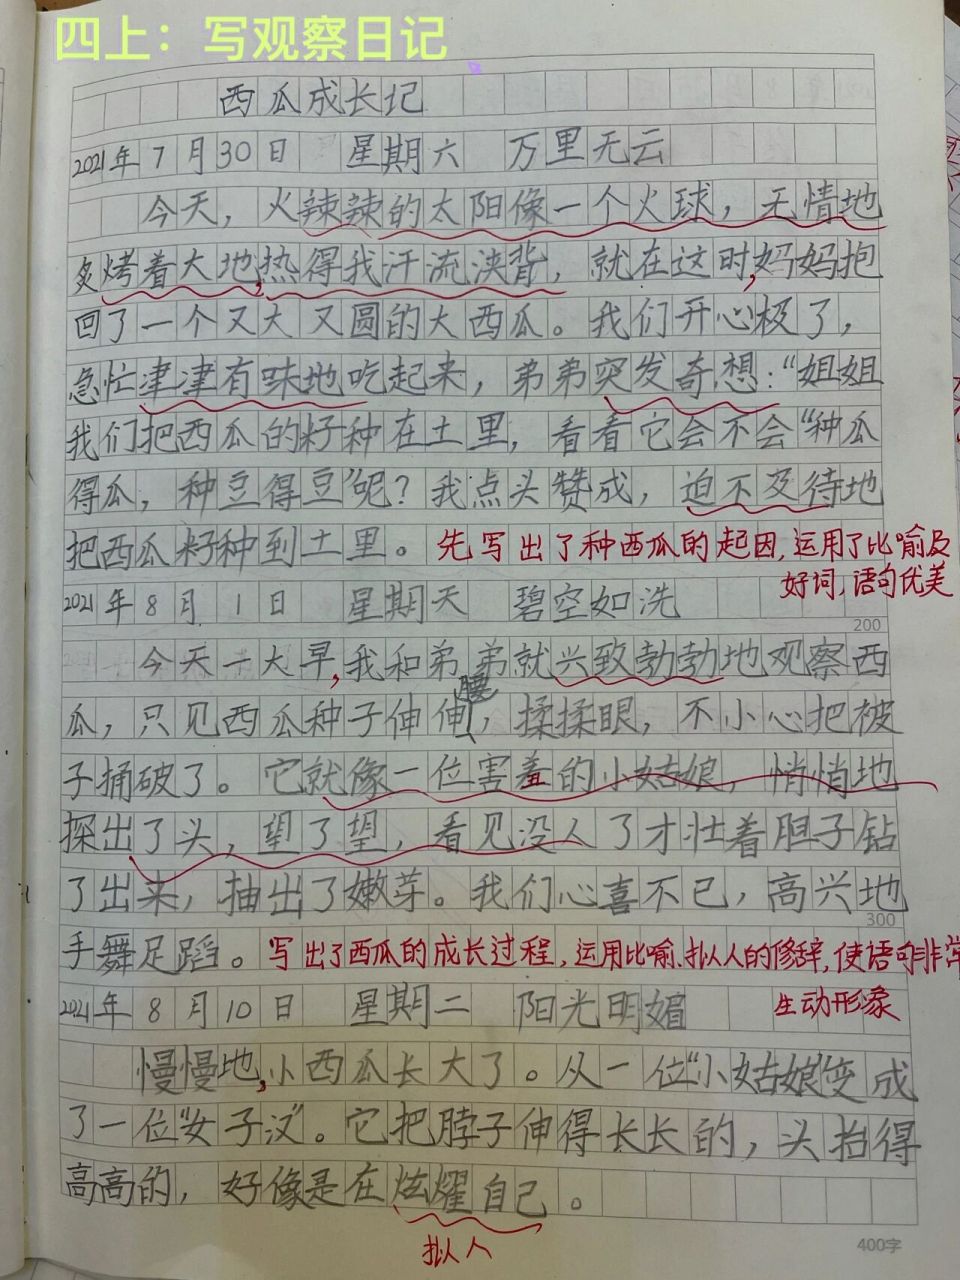 四上：写观察日记
西瓜成长记
2021年7月30日 星期六 万里无云
今天，火辣辣的太阳像一个火球，无情地
炙烤着大地，热得我汗流浃背，就在这时，妈妈抱
回了一个又大又圆的大西瓜。我们开心极了，
急忙津津有味地吃起来，弟弟突发奇想：“姐姐
我们把西瓜的籽种在土里，看看它会不会“种瓜
得瓜，种豆得豆”呢？我点头赞成，迫不及待地
把西瓜籽种到土里。
先写出了种西瓜的起因，运用了比喻及
好词，语句优美
2021年8月1日 星期天 碧空如洗
200
今天一大早，我和弟弟就兴致勃勃地观察西
瓜，只见西瓜种子伸伸腰，揉揉眼，不小心把被
子捅破了。它就像一位害羞的小姑娘，悄悄地
探出了头，望了望，看见没人了才壮着胆子钻
了出来，抽出了嫩芽。我们心喜不已，高兴地
300
手舞足蹈。
写出了西瓜的成长过程，运用比喻、拟人的修辞，使语句非常
生动形象
2021年8月10日 星期二 阳光明媚
慢慢地，小西瓜长大了。从一位“小姑娘”变成
了一位“女子汉”。它把脖子伸得长长的，头抬得
高高的，好像是在炫耀自己。
拟人
400字